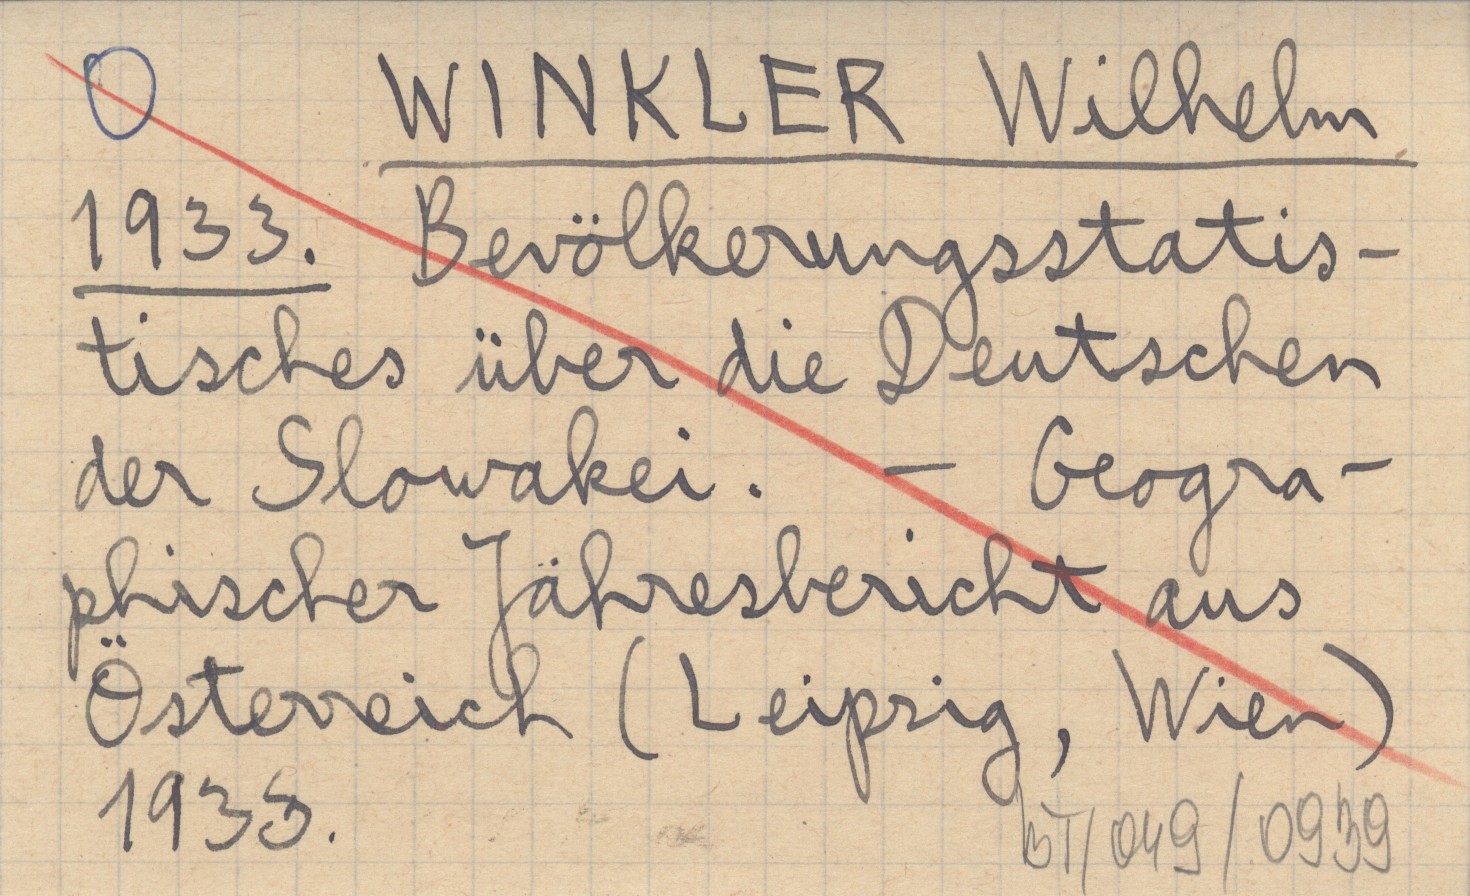 O WINKLER Wilhelm
1933. Bevölkerungsstatis-
tisches über die Deutschen
der Slowakei. — Geogra-
phischer Jähresbericht aus
Österreich (Leipzig, Wien)
1933.
BT/049/0939